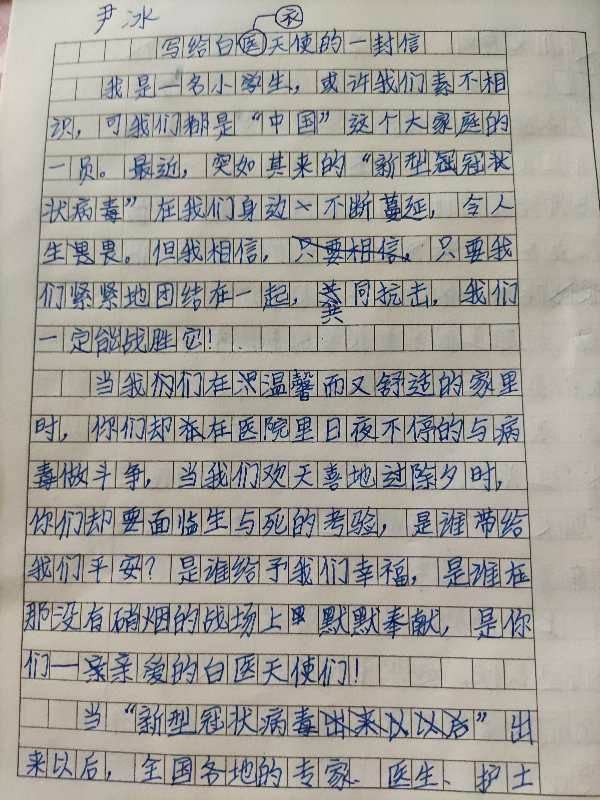 尹冰
衣
写给白医天使的一封信
我是一名小学生，或许我们素不相
识，可我们都是“中国”这个大家庭的
一员。最近，突如其来的“新型冠冠状
状病毒”在我们身边不断蔓延，令人
生畏畏。但我相信，只要相信，只要我
们紧紧地团结在一起，共同抗击，我们
一定能战胜它！
当我们在温馨而又舒适的家里
时，你们却在医院里日夜不停的与病
毒做斗争，当我们欢天喜地过除夕时，
你们却要面临生与死的考验，是谁带给
我们平安？是谁给予我们幸福，是谁在
那没有硝烟的战场上默默奉献，是你
们—亲亲爱的白医天使们！
当“新型冠状病毒出来以以后”出
来以后，全国各地的专家、医生、护士